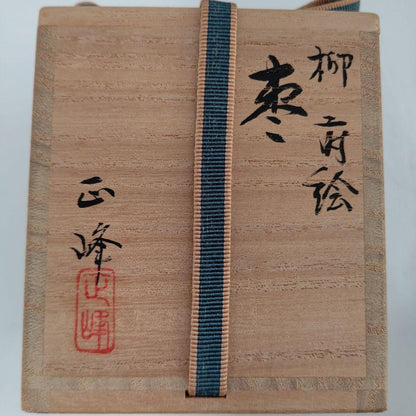 柳蒔絵
棗
正峰
正峰